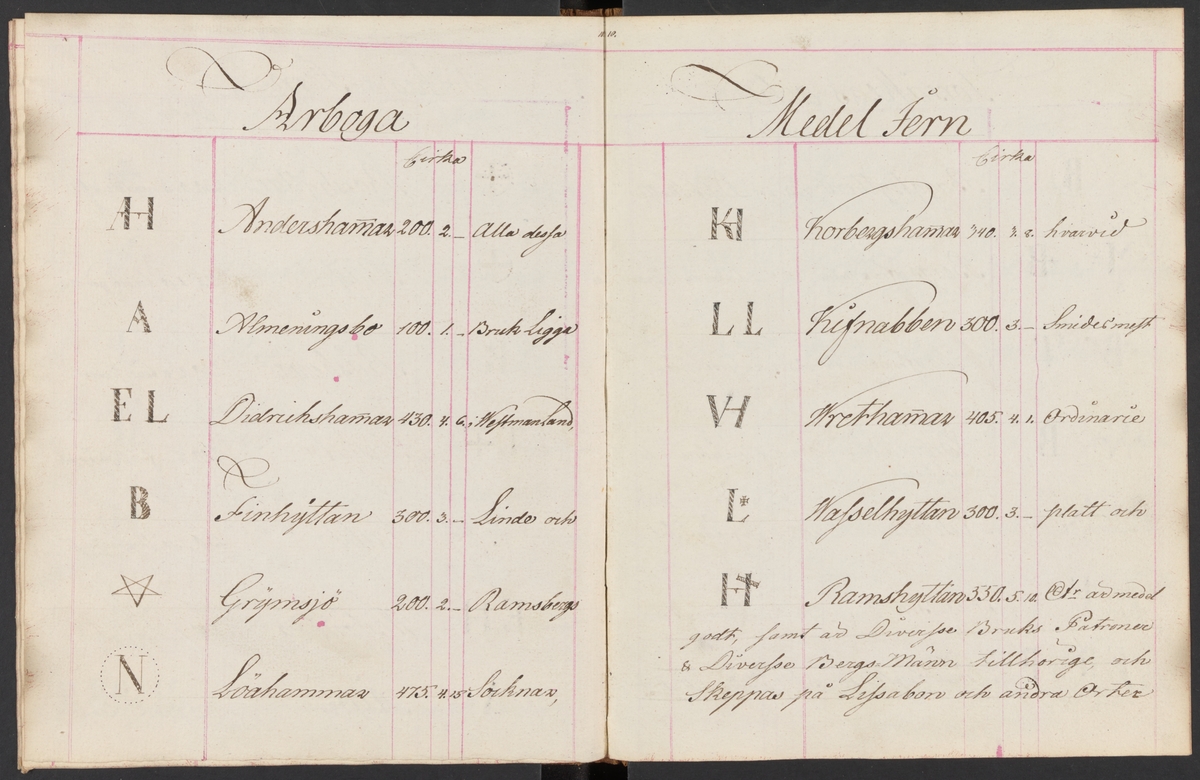 Arboga
Cirka
AH Andersham̄ar 200. 2. – Alla dessa
A Almeningsbo 100. 1. – Bruk Ligga
EL Didrichsham̄ar 430. 4. 6. i Westmanland
B Finhyttan 300. 3. – Linde och
Grymsjö 200. 2. – Ramsbergs
N Löahammar 475. 4. 15 Söcknar,
Medel Jern
Cirka
KH Korbergsham̄ar 340. 3. 8. hvarvid
LL Kifsnabben 300. 3. – Smides mest
VH Wretham̄ar 405. 4. 1. Ordinarie
L Wasselhyttan 300. 3. – platt och
H Ramshyttan 550. 5. 10. Ctr ad medel
godt, samt äd Diversse Bruks Patroner
& Diversse Bergs Männ tillhörige, och
Skeppas på Lissabon och andra Orter